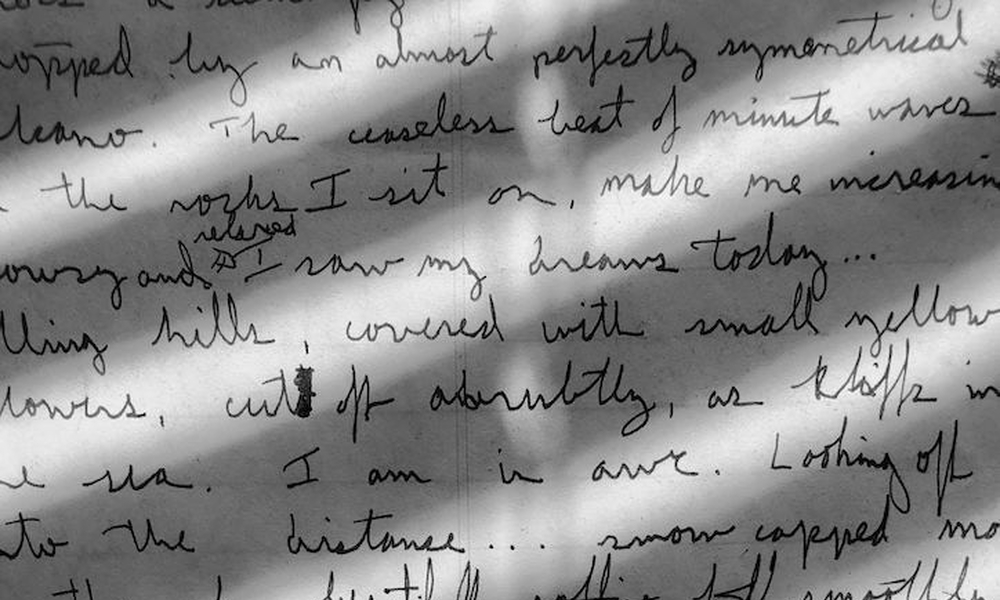 topped by an almost perfectly symmetrical
lcano. The ceaseless beat of minute waves
the rocks I sit on, make me increasin
relaxed
owsy and I saw my dreams today...
lling hills, covered with small yellow
lowers, cut off abrubtly, as kliffs in
he sea. I am in awe. Looking off
nto the distance... snow capped mo